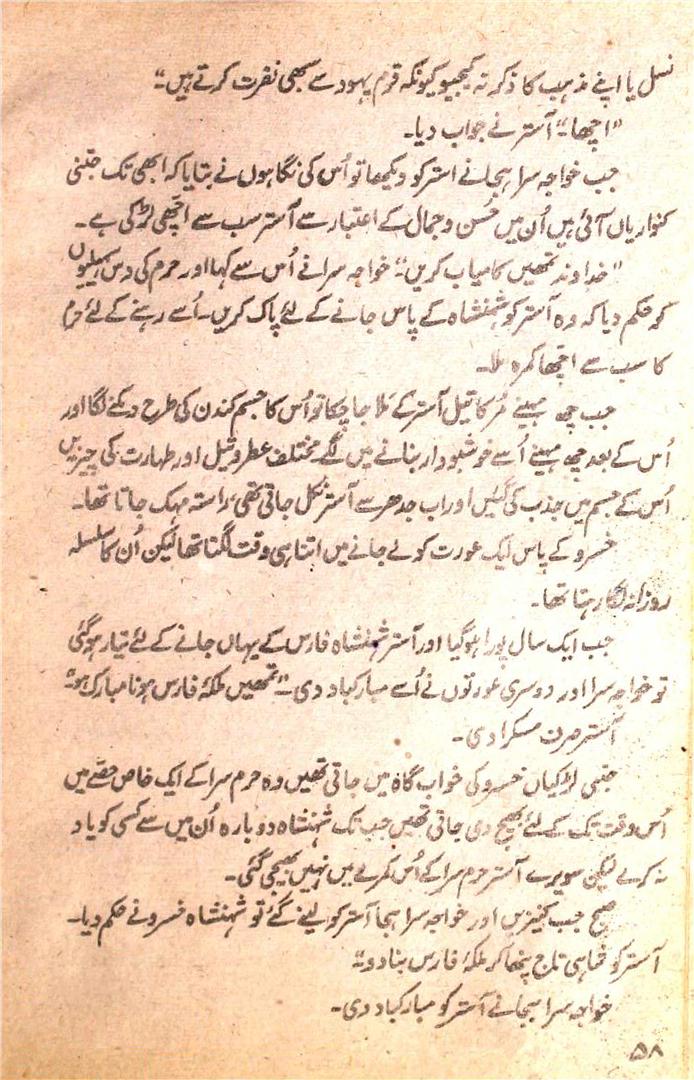 نسل یا اپنے مذہب کا ذکر نہ کیجیو کیونکہ قوم یہود سے سبھی نفرت کرتے ہیں۔“
”اچھا۔“ آستر نے جواب دیا۔
جب خواجہ سرا ہیجا نے استر کو دیکھا تو اُس کی نگاہوں نے بتایا کہ ابھی تک جتنی
کنواریاں آئی ہیں اُن میں حُسن و جمال کے اعتبار سے آستر سب سے اچھی لڑکی ہے۔
”خداوند تمھیں کامیاب کریں“ خواجہ سرا نے اُس سے کہا اور حرم کی دس سہیلیوں
کو حکم دیا کہ وہ آستر کو شہنشاہ کے پاس جانے کے لئے پاک کریں۔ اُسے رہنے کے لئے حرم
کا سب سے اچھا کمرہ ملا۔
جب چھ مہینے مُر کا تیل آستر کے مَلا جا چکا تو اُس کا جسم کندن کی طرح دمکنے لگا اور
اُس کے بعد چھ مہینے اُسے خوشبودار بنانے میں لگے مختلف عطر و تیل اور طہارت کی چیزیں
اُس کے جسم میں جذب کی گئیں اور اب جدھر سے آستر نکل جاتی تھی، راستہ مہک جاتا تھا۔
خسرو کے پاس ایک عورت کو لے جانے میں اتنا ہی وقت لگتا تھا لیکن اُن کا سلسلہ
روزانہ لگا رہتا تھا۔
جب ایک سال پورا ہو گیا اور آستر شہنشاہ فارس کے یہاں جانے کے لئے تیار ہو گئی
تو خواجہ سرا اور دوسری عورتوں نے اُسے مبارکباد دی۔ ”تمھیں ملکۂ فارس ہونا مبارک ہو۔“
آستر صرف مسکرا دی۔
جتنی لڑکیاں خسرو کی خواب گاہ میں جاتی تھیں وہ حرم سرا کے ایک خاص حصّے میں
اُس وقت تک کے لئے بھیج دی جاتی تھیں جب تک شہنشاہ دوبارہ اُن میں سے کسی کو یاد
نہ کرے لیکن سویرے آستر حرم سرا کے اُس کمرے میں نہیں بھیجی گئی۔
صبح جب کنیزیں اور خواجہ سرا ہیجا آستر کو لینے گئے تو شہنشاہ خسرو نے حکم دیا۔
آستر کو شاہی تاج پنھا کر ملکۂ فارس بنا دو۔“
خواجہ سرا ہیجا نے آستر کو مبارکباد دی۔
۵۸